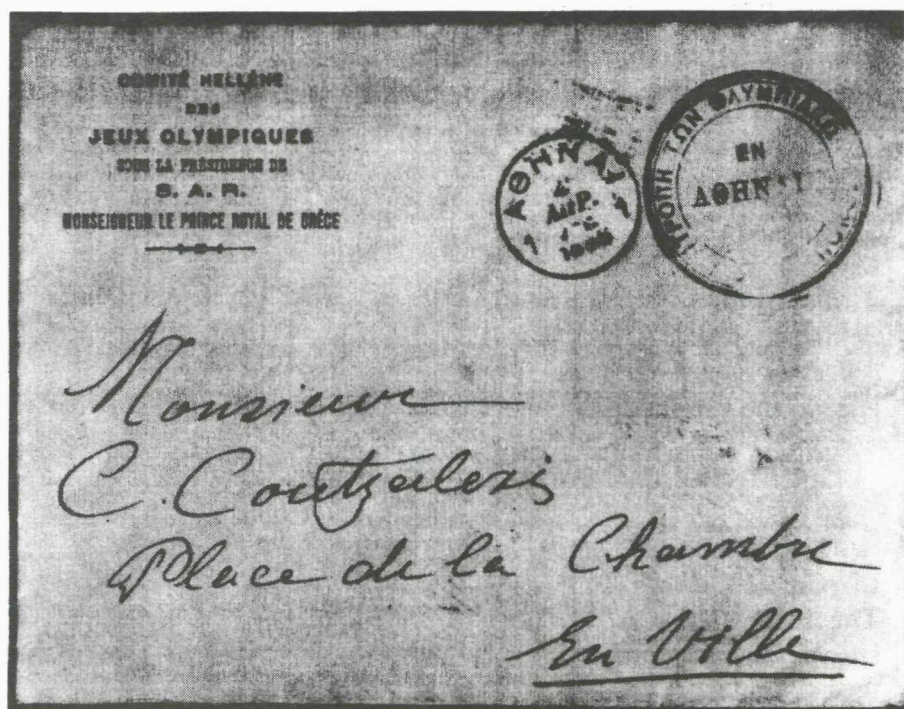 COMITÉ HELLÈNE
DES
JEUX OLYMPIQUES
SOUS LA PRÉSIDENCE DE
S. A. R.
MONSEIGNEUR LE PRINCE ROYAL DE GRÈCE
ΑΘΗΝΑΙ
ΤΩΝ
ΕΝ
Monsieur
C. Coutzalexis
Place de la Chambre
En Ville